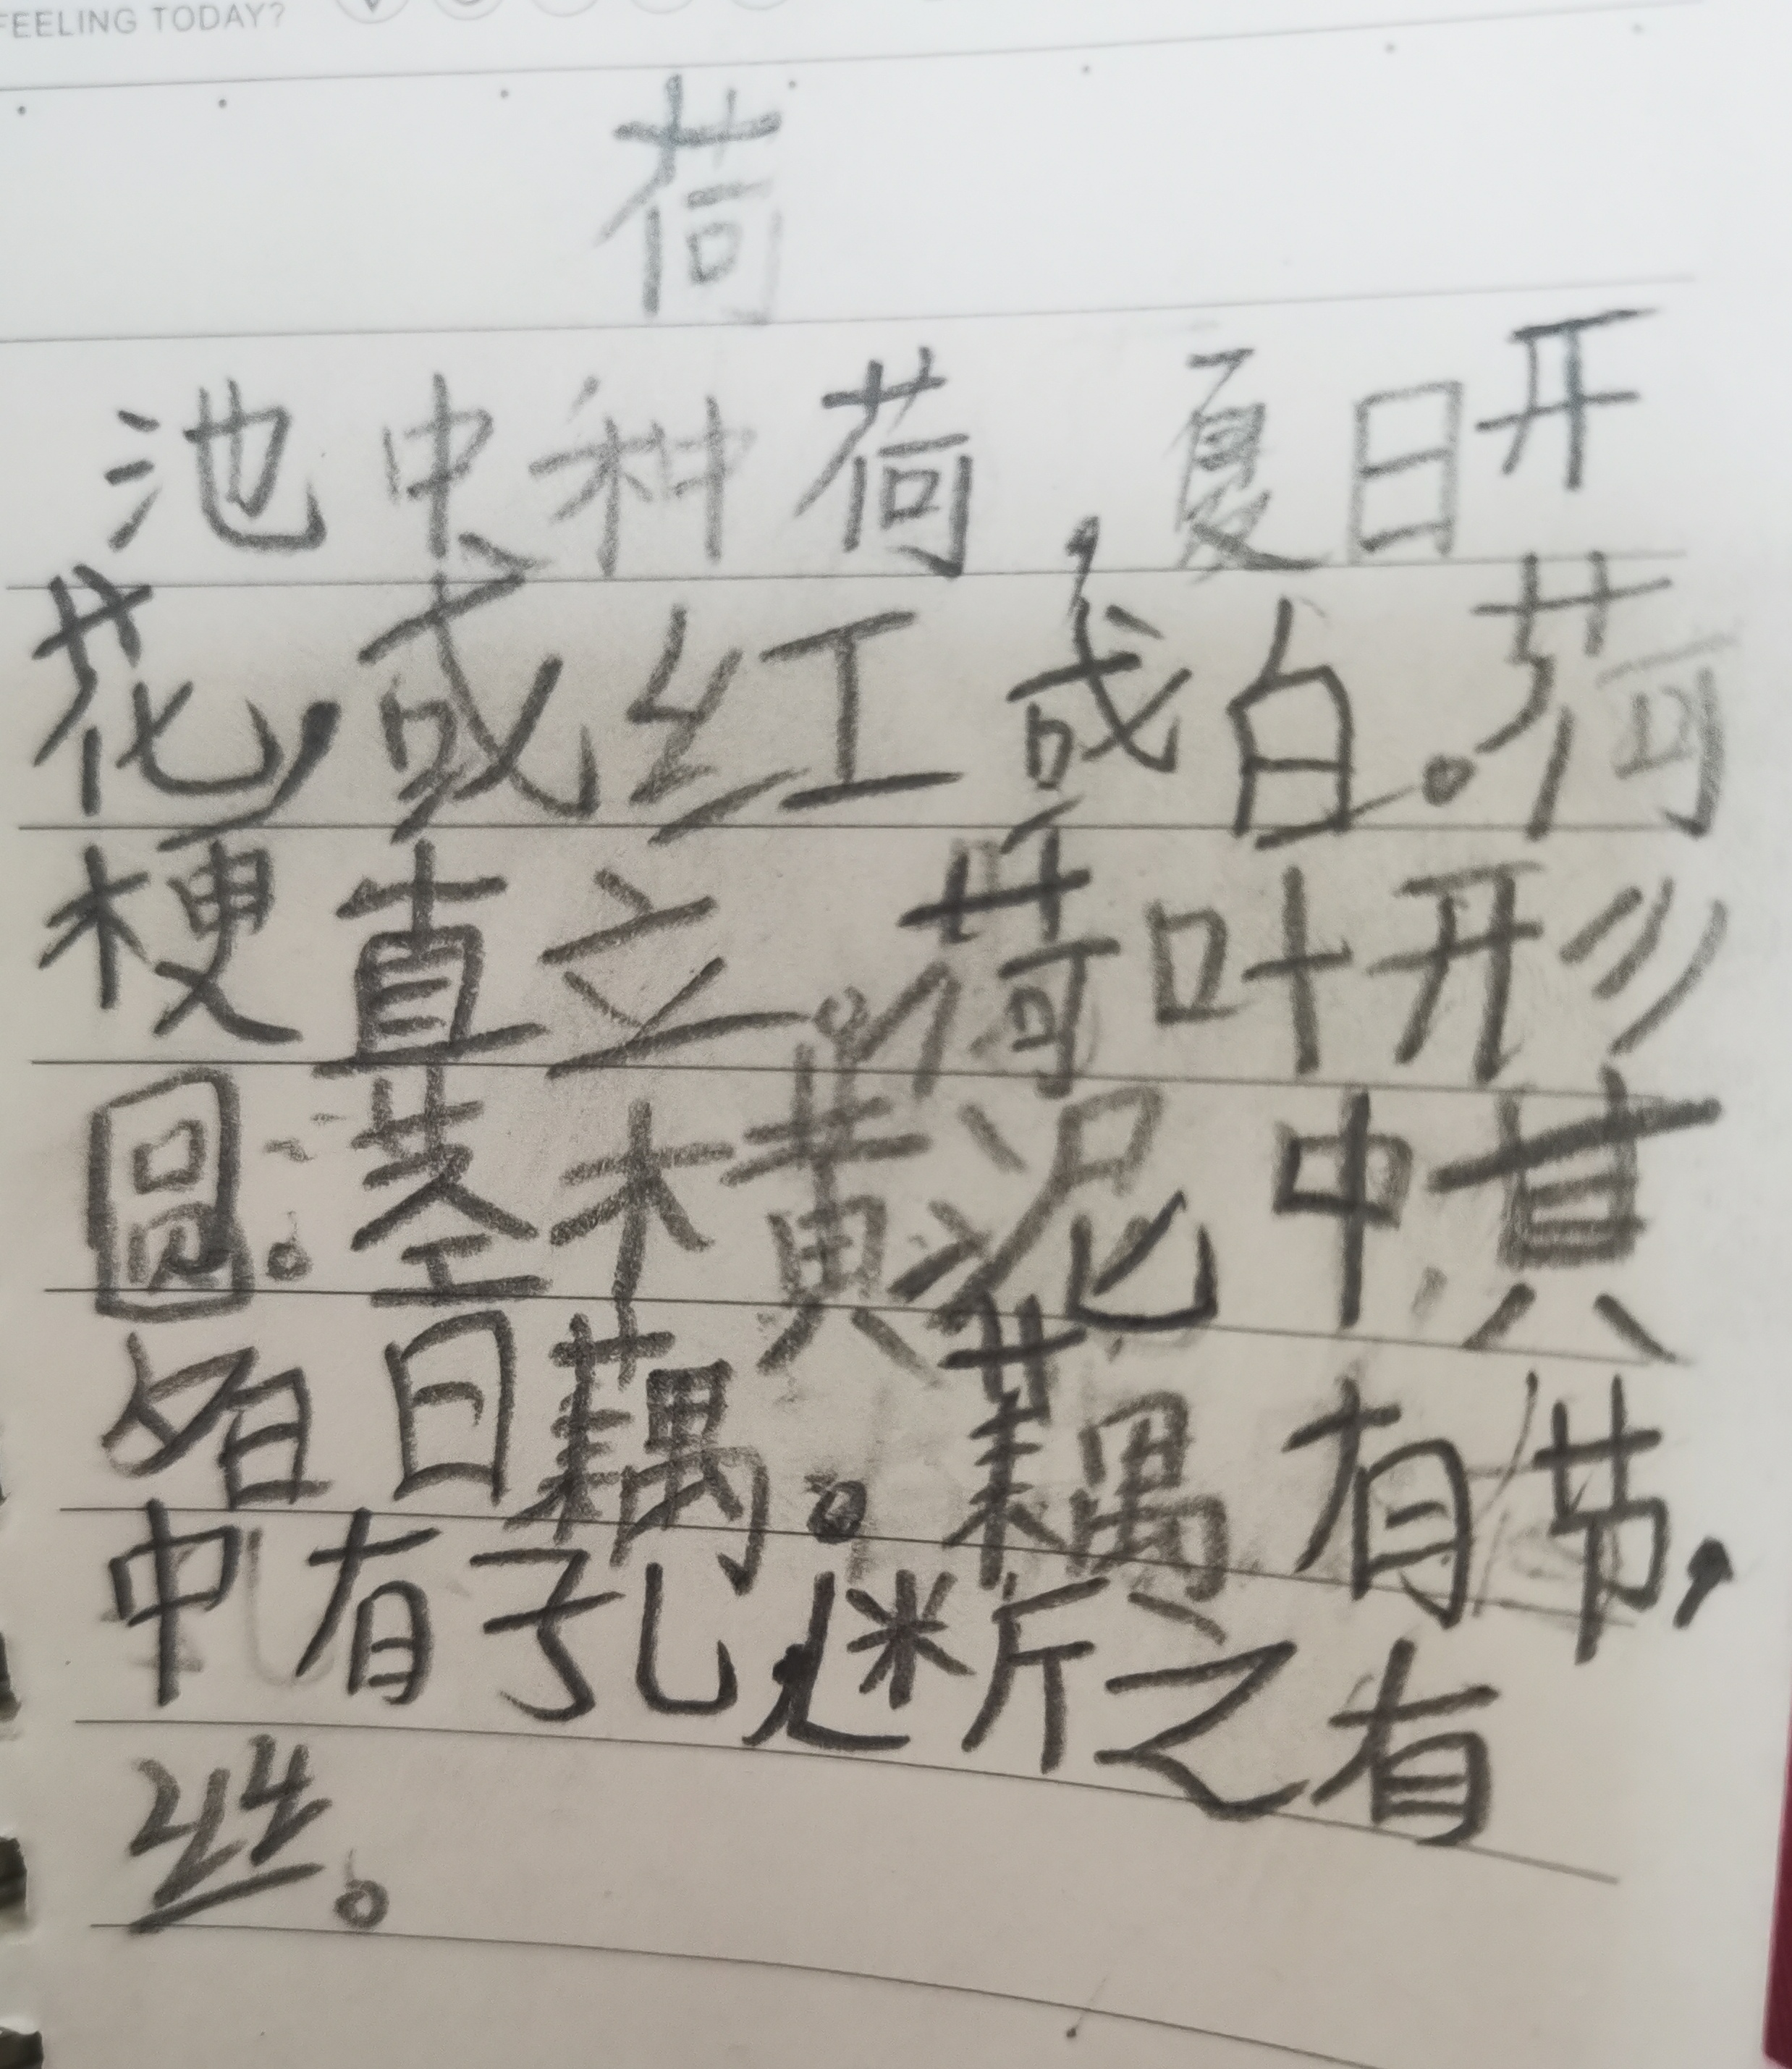 FEELING TODAY?
荷
池中种荷,夏日开
花,或红或白。荷
梗直立。荷叶形
圆。茎木黄泥中其
名曰藕。藕有节,
中有孔,断之有
丝。